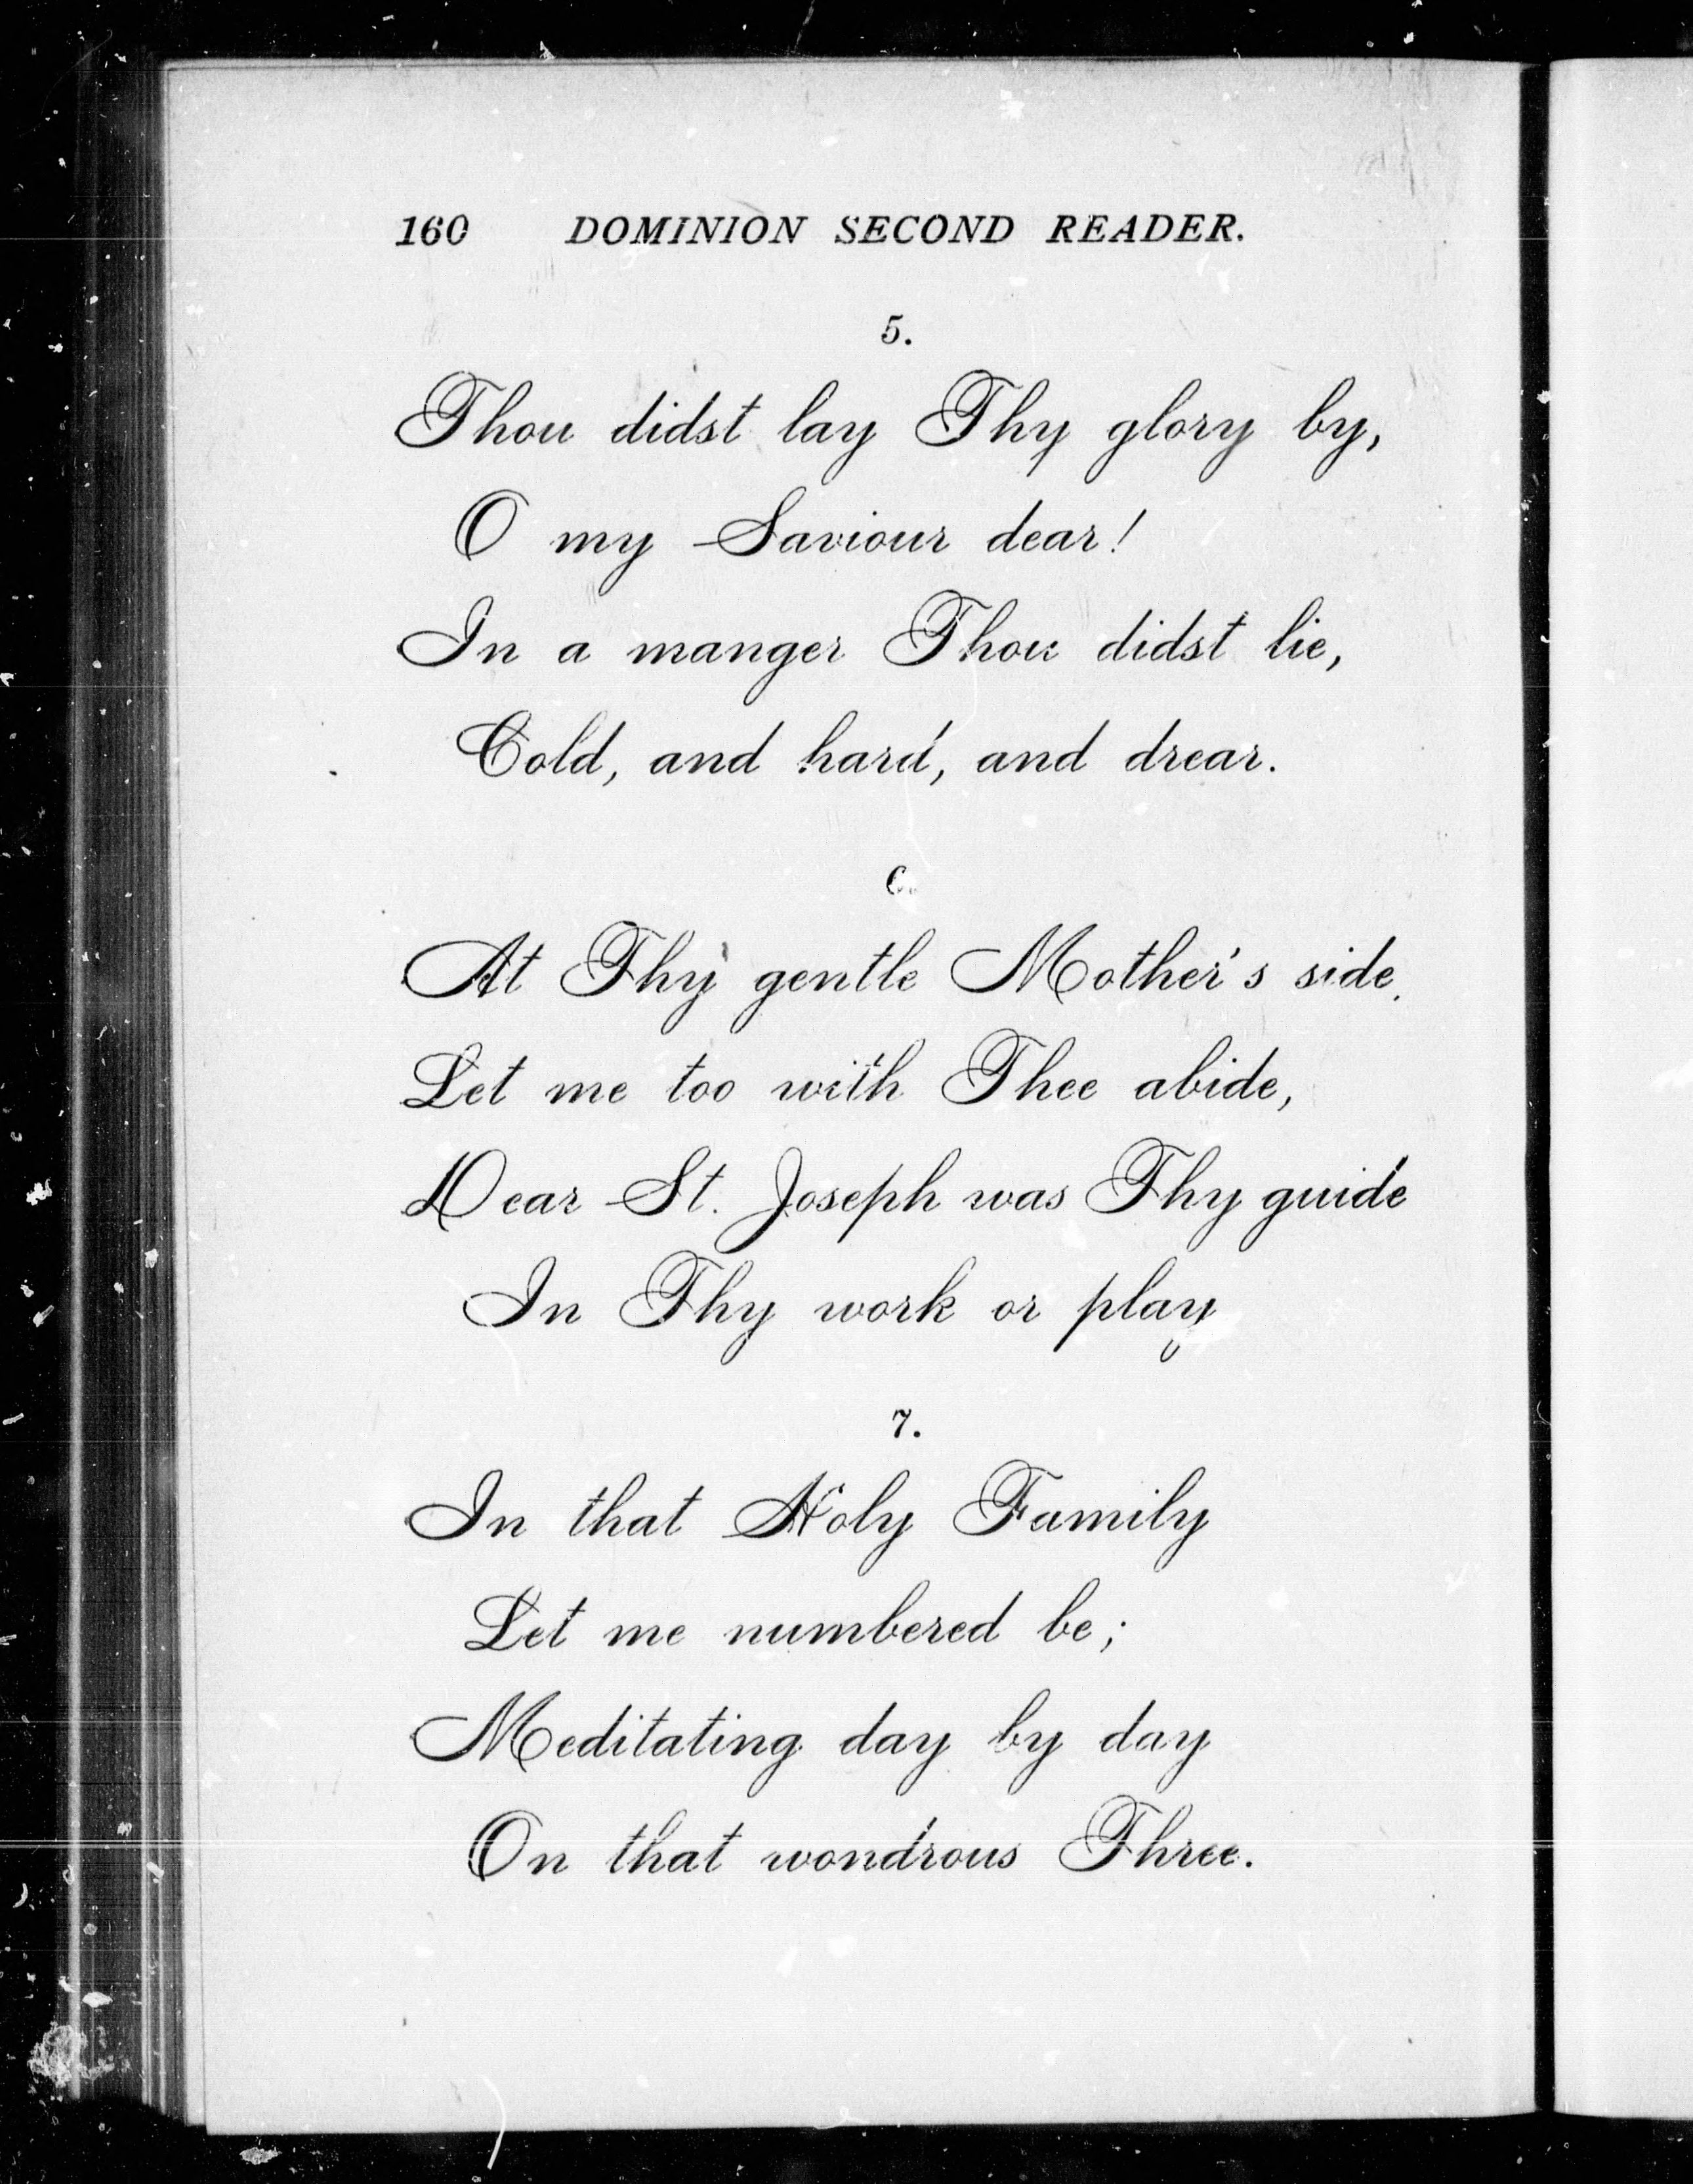 160 DOMINION SECOND READER.
5.
Thou didst lay Thy glory by,
O my Saviour dear!
In a manger Thou didst lie,
Cold, and hard, and drear.
6.
At Thy gentle Mother's side,
Let me too with Thee abide,
Dear St. Joseph was Thy guide
In Thy work or play
7.
In that Holy Family
Let me numbered be;
Meditating day by day
On that wondrous Three.